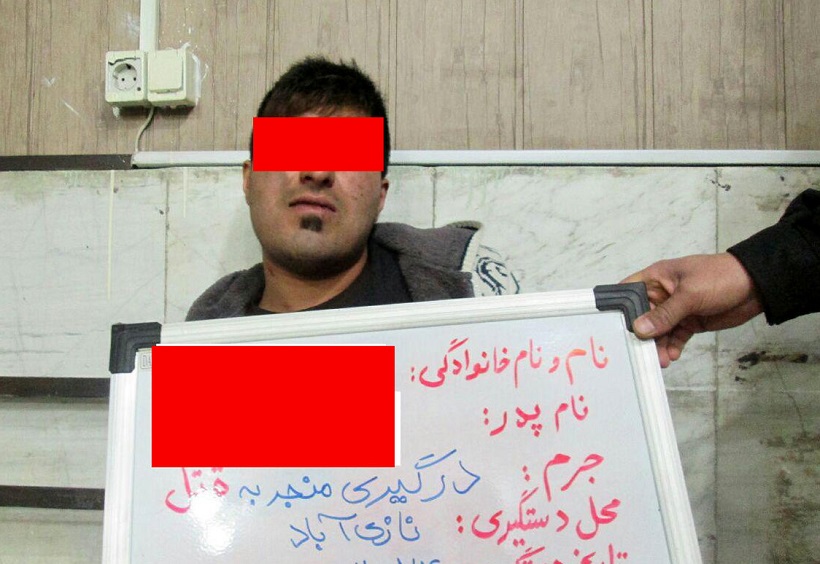 نام و نام خانوادگی:
نام پدر:
جرم: درگیری منجر به قتل
محل دستگیری: نازی آباد